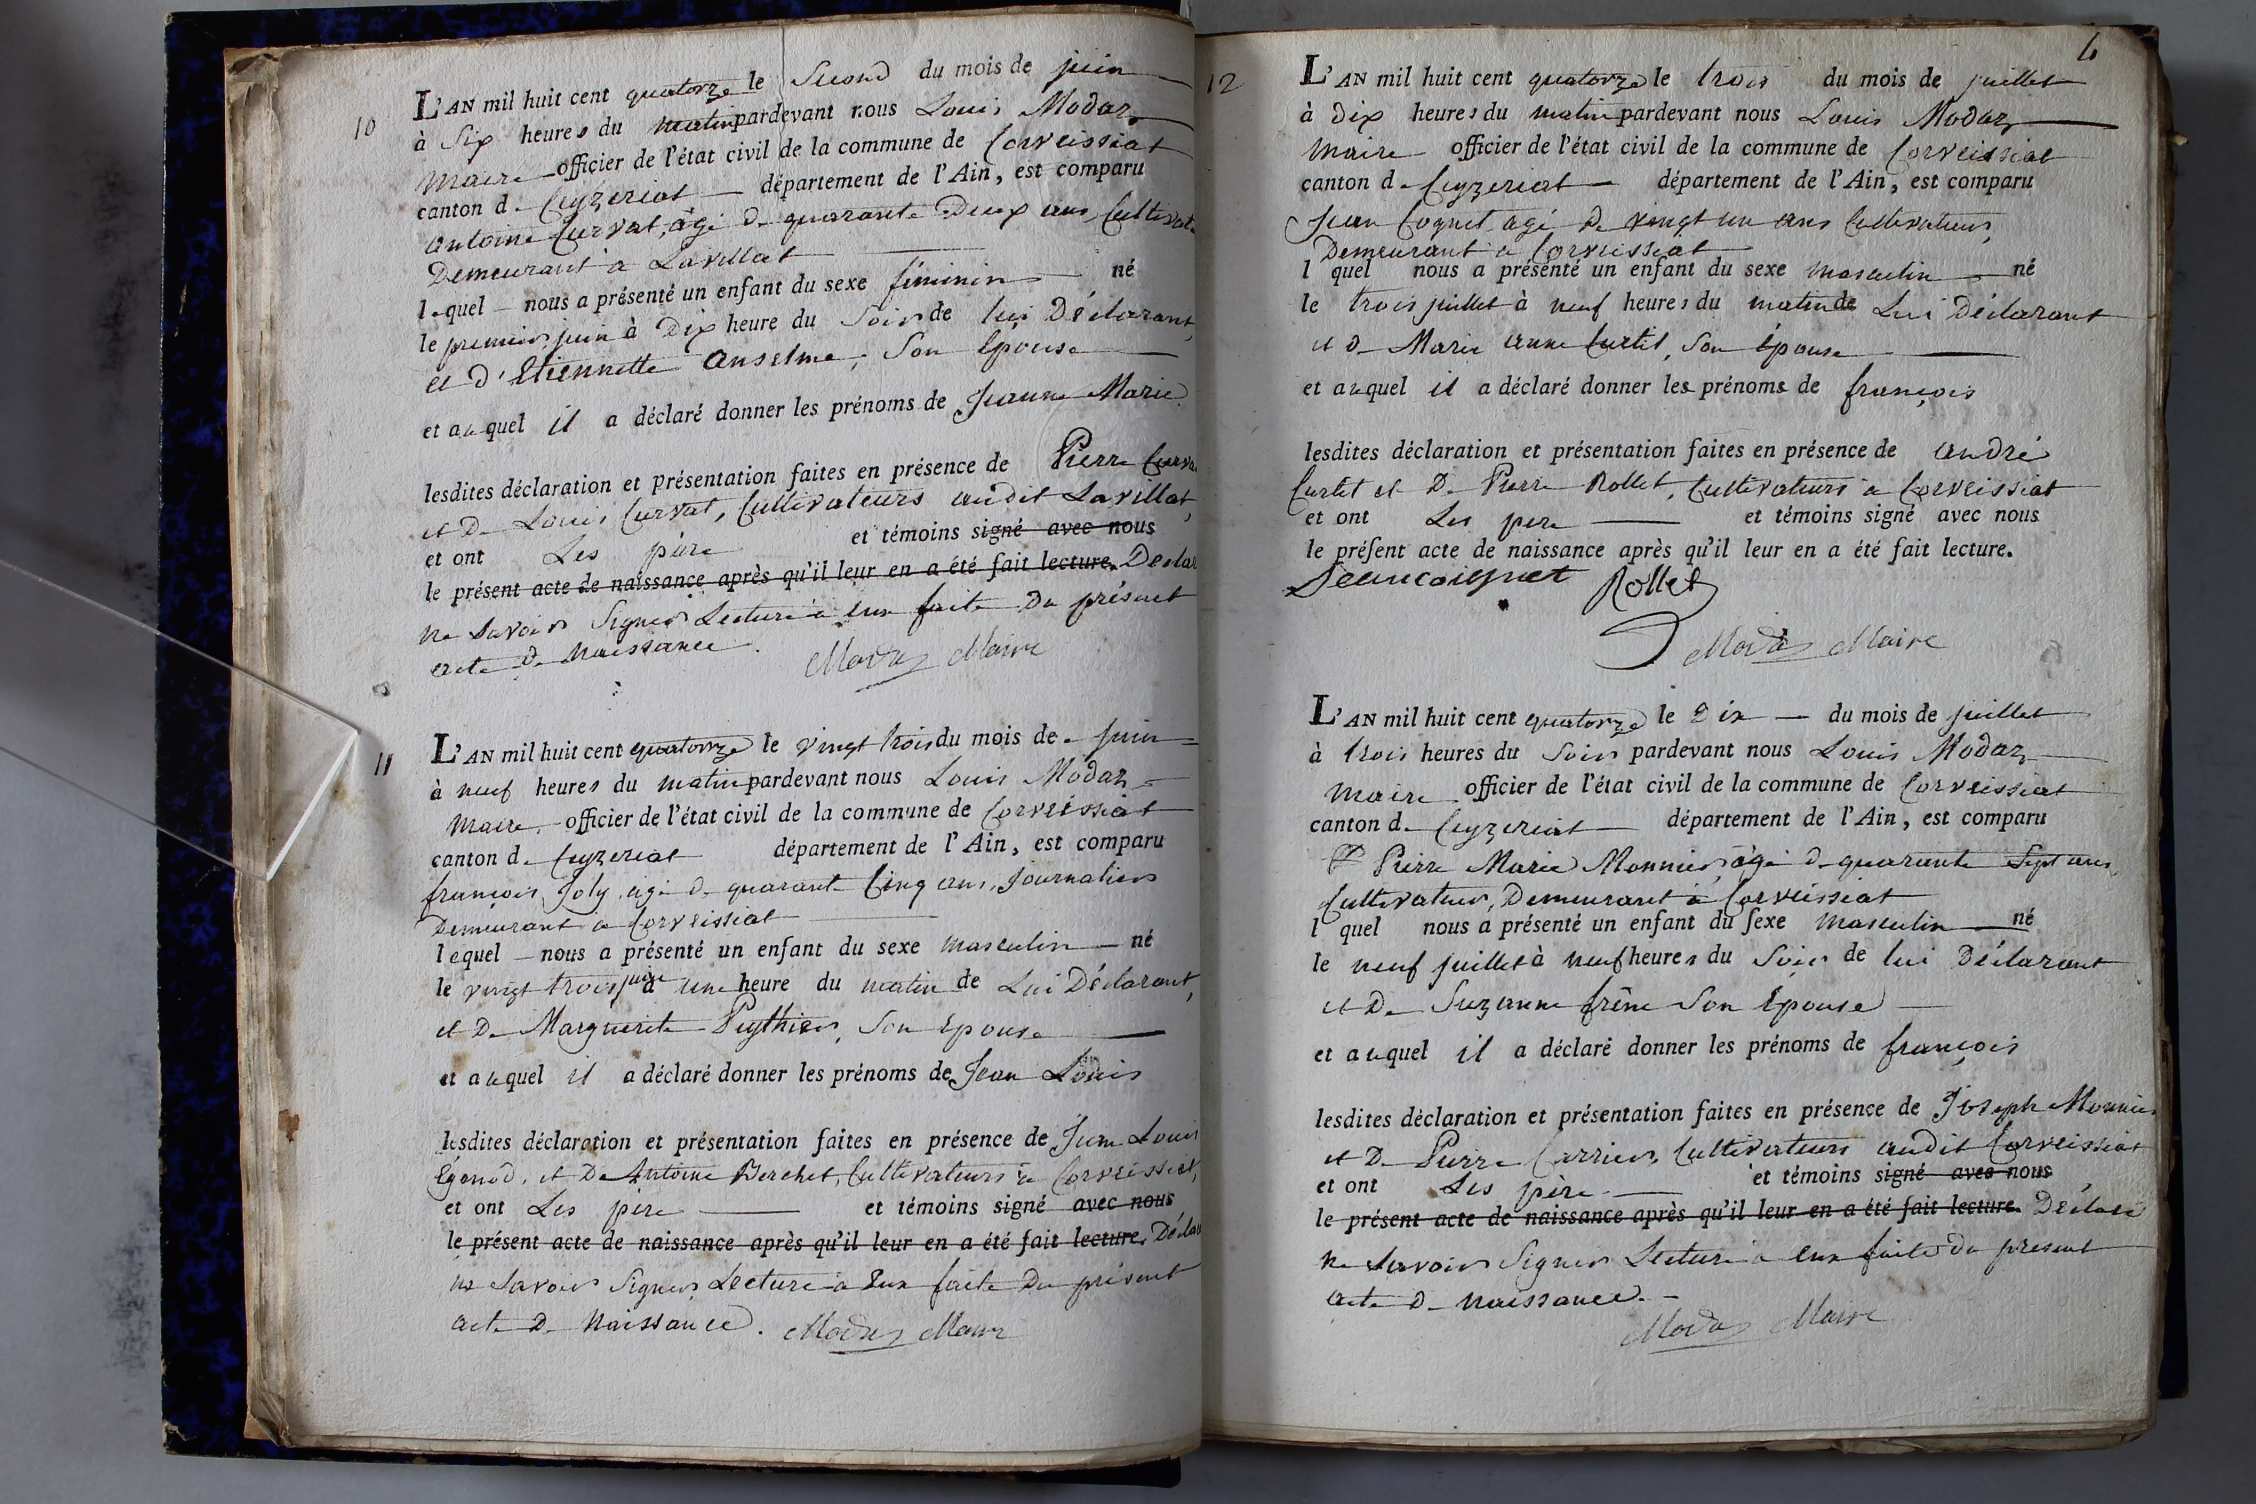 10
L'AN mil huit cent quatorze le Second du mois de juin
à Six heures du matin pardevant nous Louis Modaz
Maire officier de l'état civil de la commune de Corveissiat
canton de Ceyzeriat département de l'Ain, est comparu
antoine Curvat, agé de quarante Deux ans, Cultivat
Demeurant a Lavillat
lequel nous a présenté un enfant du sexe féminin né
le premier juin à Dix heure du Soir de lui Déclarant,
et d'Etiennette anselme, Son Epouse
et auquel il a déclaré donner les prénoms de Jeanne Marie
lesdites déclaration et présentation faites en présence de Pierre Curva
et De Louis Curvat, Cultivateurs audit Lavillat,
et ont Les père et témoins signé avec nous
le présent acte de naissance après qu'il leur en a été fait lecture. Déclar
ne savoir Signer Lecture à eux faite Du présent
acte De Naissance. Modaz Maire
11
L'AN mil huit cent quatorze le vingt trois du mois de juin
à neuf heures du matin pardevant nous Louis Modaz
Maire officier de l'état civil de la commune de Corveissiat
canton de Ceyzeriat département de l'Ain, est comparu
françois Joly, agé de quarante Cinq ans, Journalier
Demeurant à Corveissiat
lequel nous a présenté un enfant du sexe masculin né
le vingt trois juin à une heure du matin de Lui Déclarant,
et De Marguerite Puythier, Son Epouse
et auquel il a déclaré donner les prénoms de Jean Louis
lesdites déclaration et présentation faites en présence de Jean Louis
Egraud, et De Antoine Berchet, Cultivateurs à Corveissiat,
et ont Les père et témoins signé avec nous
le présent acte de naissance après qu'il leur en a été fait lecture. Décla
ne Savoir Signer, Lecture à Eux faite Du présent
acte De Naissance. Modaz Maire
6
12
L'AN mil huit cent quatorze le trois du mois de juillet
à dix heures du matin pardevant nous Louis Modaz
Maire officier de l'état civil de la commune de Corveissiat
canton de Ceyzeriat département de l'Ain, est comparu
Jean Cognet, agé De vingt un ans Cultivateur,
Demeurant à Corveissiat
l quel nous a présenté un enfant du sexe masculin né
le trois juillet à neuf heures du matin de Lui Déclarant
et De Marie anne Curtil, Son Épouse
et auquel il a déclaré donner les prénoms de françois
lesdites déclaration et présentation faites en présence de andré
Curtet et De Pierre Rollet, Cultivateurs à Corveissiat
et ont Les pere et témoins signé avec nous
le préſent acte de naissance après qu'il leur en a été fait lecture.
Jeancoignet Rollet
Modaz Maire
L'AN mil huit cent quatorze le Dix du mois de juillet
à trois heures du Soir pardevant nous Louis Modaz
Maire officier de l'état civil de la commune de Corveissiat
canton de Ceyzeriat département de l'Ain, est comparu
Pierre Marie Monnier, agé de quarante Sept ans,
Cultivateur, Demeurant à Corveissiat
l quel nous a présenté un enfant du ſexe masculin né
le neuf juillet à neuf heures du Soir de lui Déclarant
et De Suzanne frêne Son Epouse
et auquel il a déclaré donner les prénoms de françois
lesdites déclaration et présentation faites en présence de Joseph Monnier
et De Pierre Carrier, Cultivateurs audit Corveissiat
et ont Les père et témoins signé avec nous
le présent acte de naissance après qu'il leur en a été fait lecture. Déclaré
ne Savoir Signer Lecture à eux faite du present
acte De Naissance.
Modaz Maire